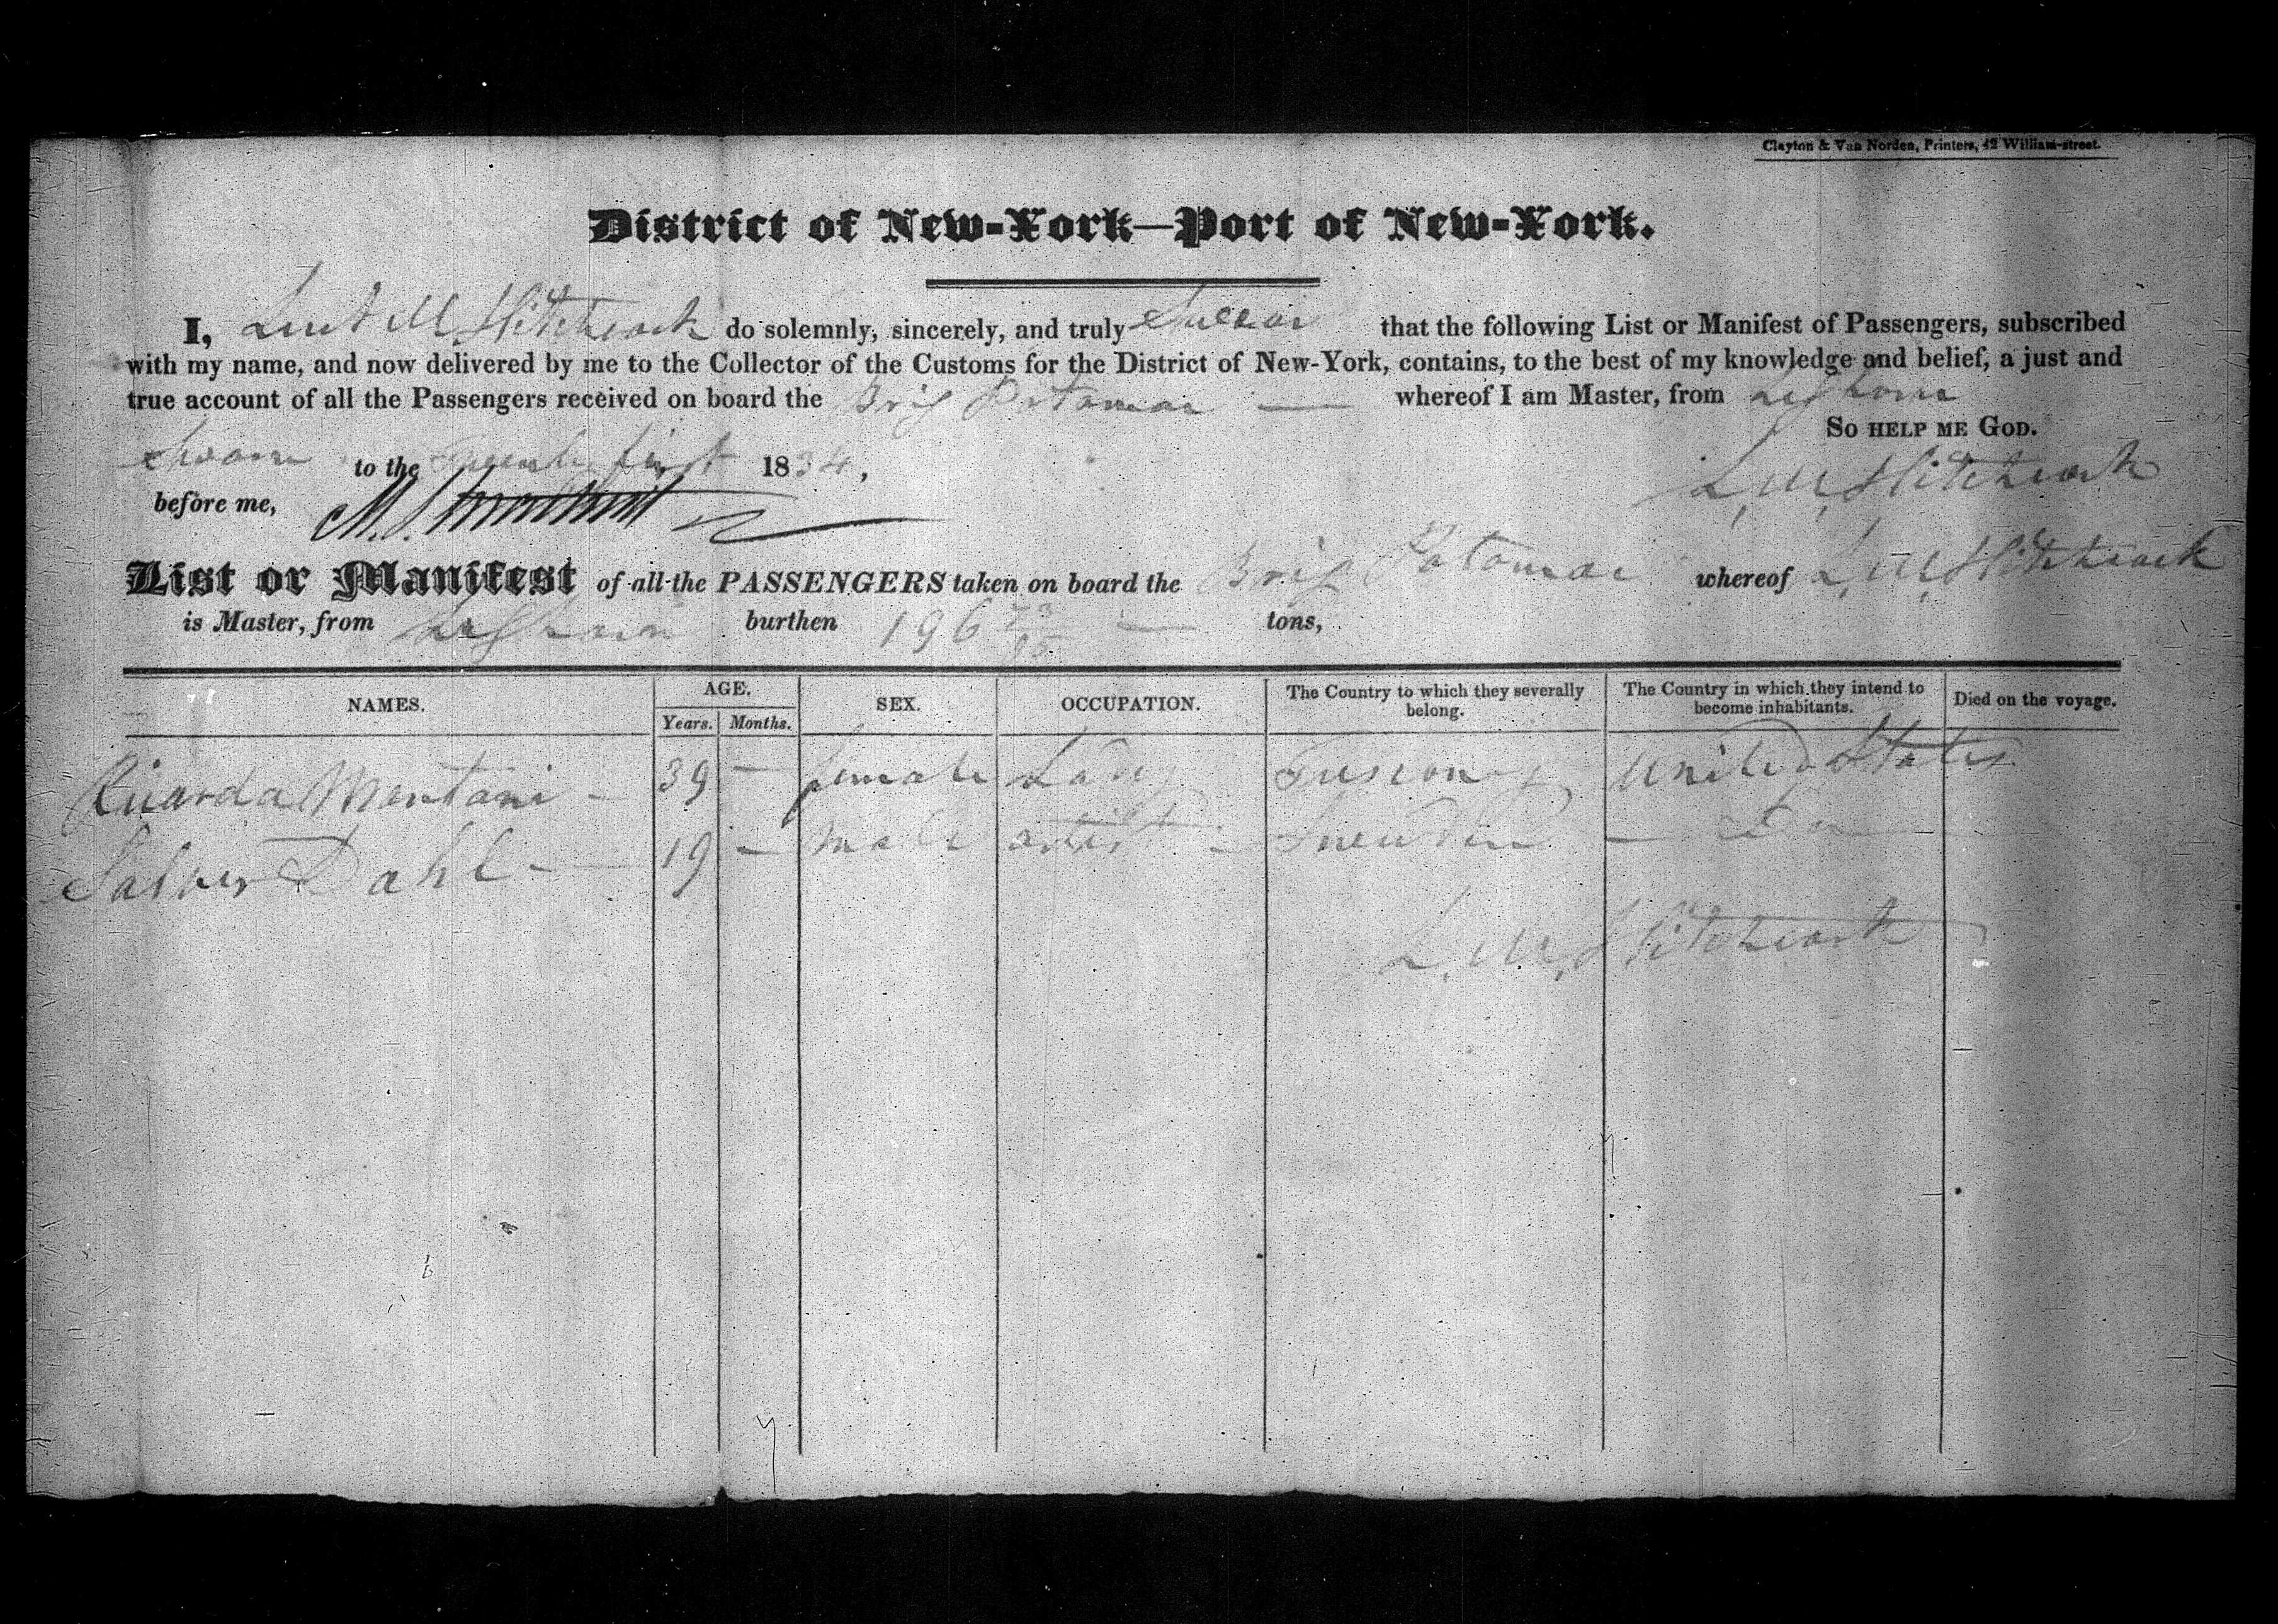 Clayton & Van Norden, Printers, 42 William-street.
District of New-York—Port of New-York.
I, M. Hitchcock do solemnly, sincerely, and truly Swear that the following List or Manifest of Passengers, subscribed
with my name, and now delivered by me to the Collector of the Customs for the District of New-York, contains, to the best of my knowledge and belief, a just and
true account of all the Passengers received on board the Brig Potomac — whereof I am Master, from
So HELP ME GOD.
Sworn to the first 1834,
L. M. Hitchcock
before me,
List or Manifest of all the PASSENGERS taken on board the Brig Potomac whereof L. M. Hitchcock
is Master, from burthen 196 tons,
NAMES. AGE. SEX. OCCUPATION. The Country to which they severally belong. The Country in which they intend to become inhabitants. Died on the voyage.
Years. Months.
Montani - 39 — female Lady Tuscany, United States
Dahl - 19 — male artist - Sweden — Do
L. M. Hitchcock